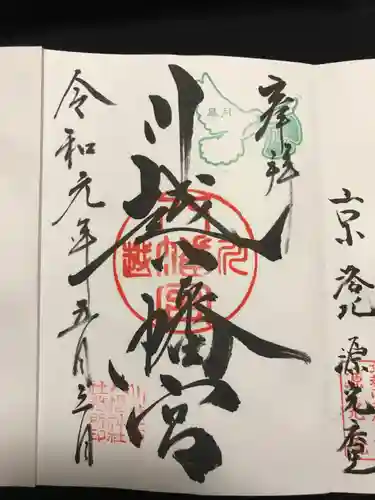 京洛北源光庵
奉拝
川越八幡宮
令和元年五月三日